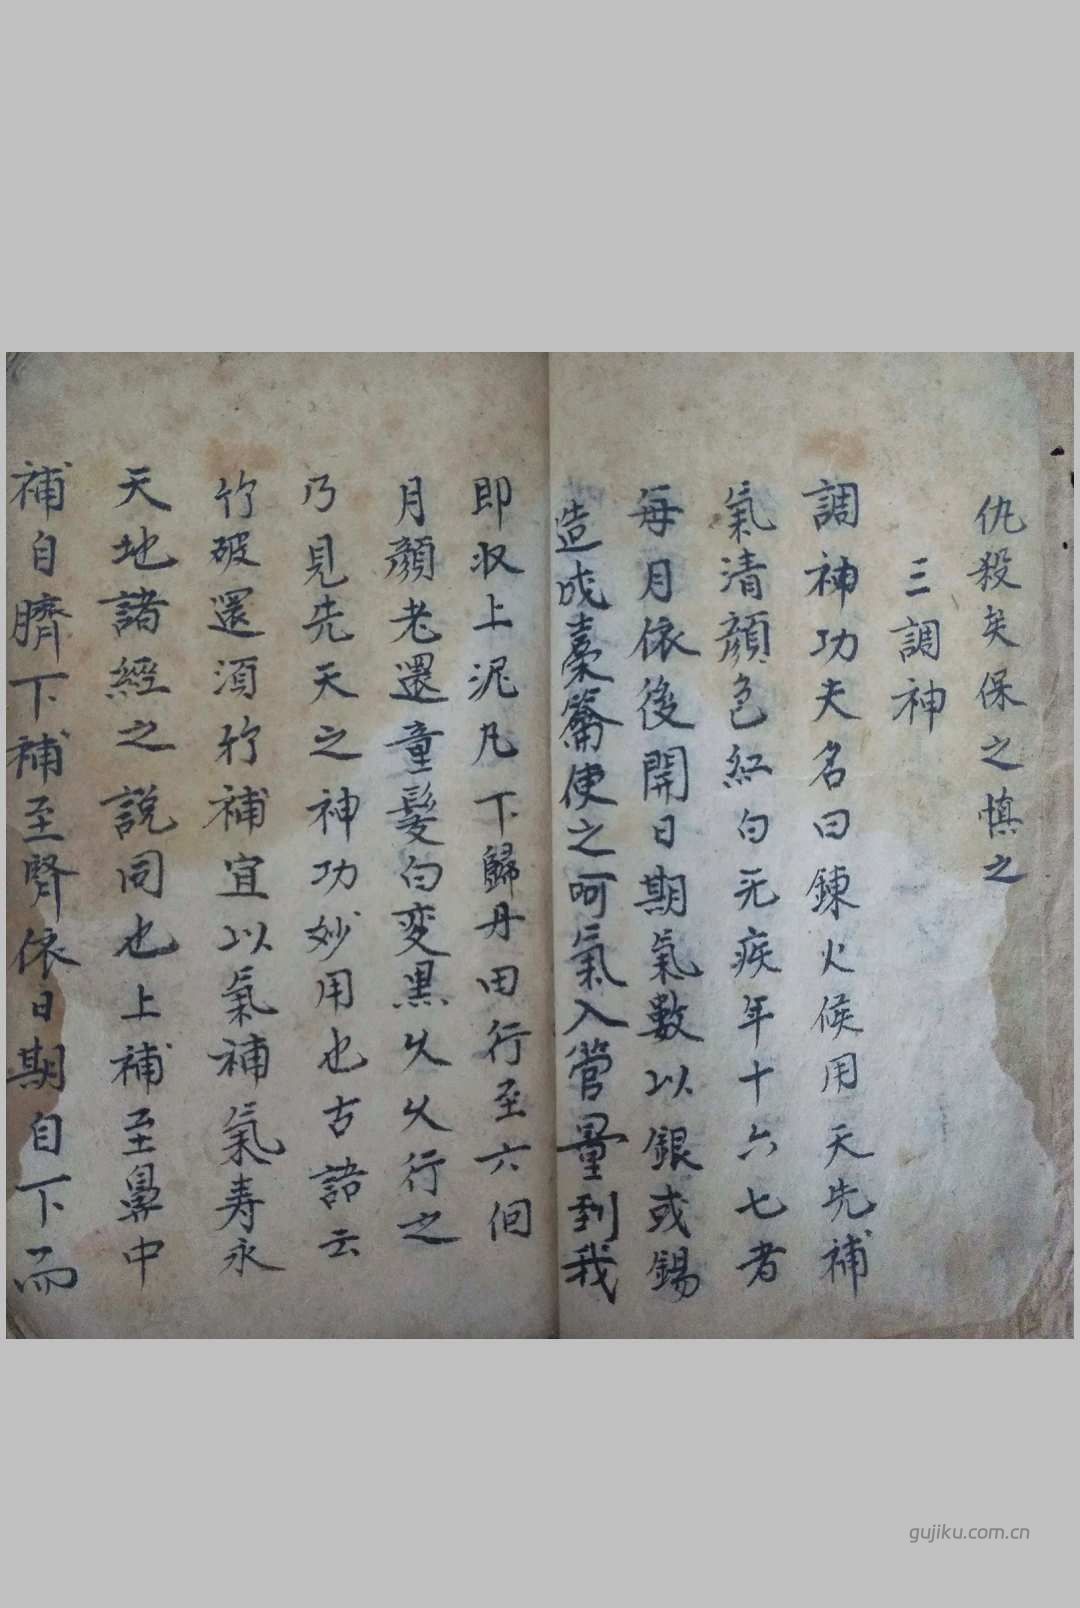 仇殺矣保之慎之
三調神
調神功夫名曰鍊火候用天先補
氣清顔色紅白无疾年十六七者
每月依後開日期氣數以銀或錫
造成橐籥使之呵氣入管量到我
即收上泥凡下歸丹田行至六個
月顔老還童髮白変黒久久行之
乃見先天之神功妙用也古語云
竹破還須竹補宜以氣補氣寿永
天地諸經之說同也上補至鼻中
補自臍下補至腎依日期自下而
gujiku.com.cn